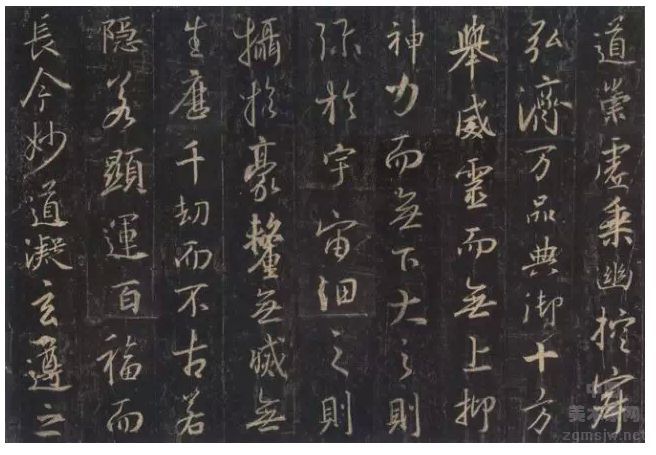 道崇虛乘幽控寂
弘濟万品典御十方
舉威靈而無上抑
神力而無下大之則
弥於宇宙細之則
攝於豪釐無滅無
生歷千劫而不古若
隱若顯運百福而
長今妙道凝玄遵之
中
美术家网
zgmsjw.net